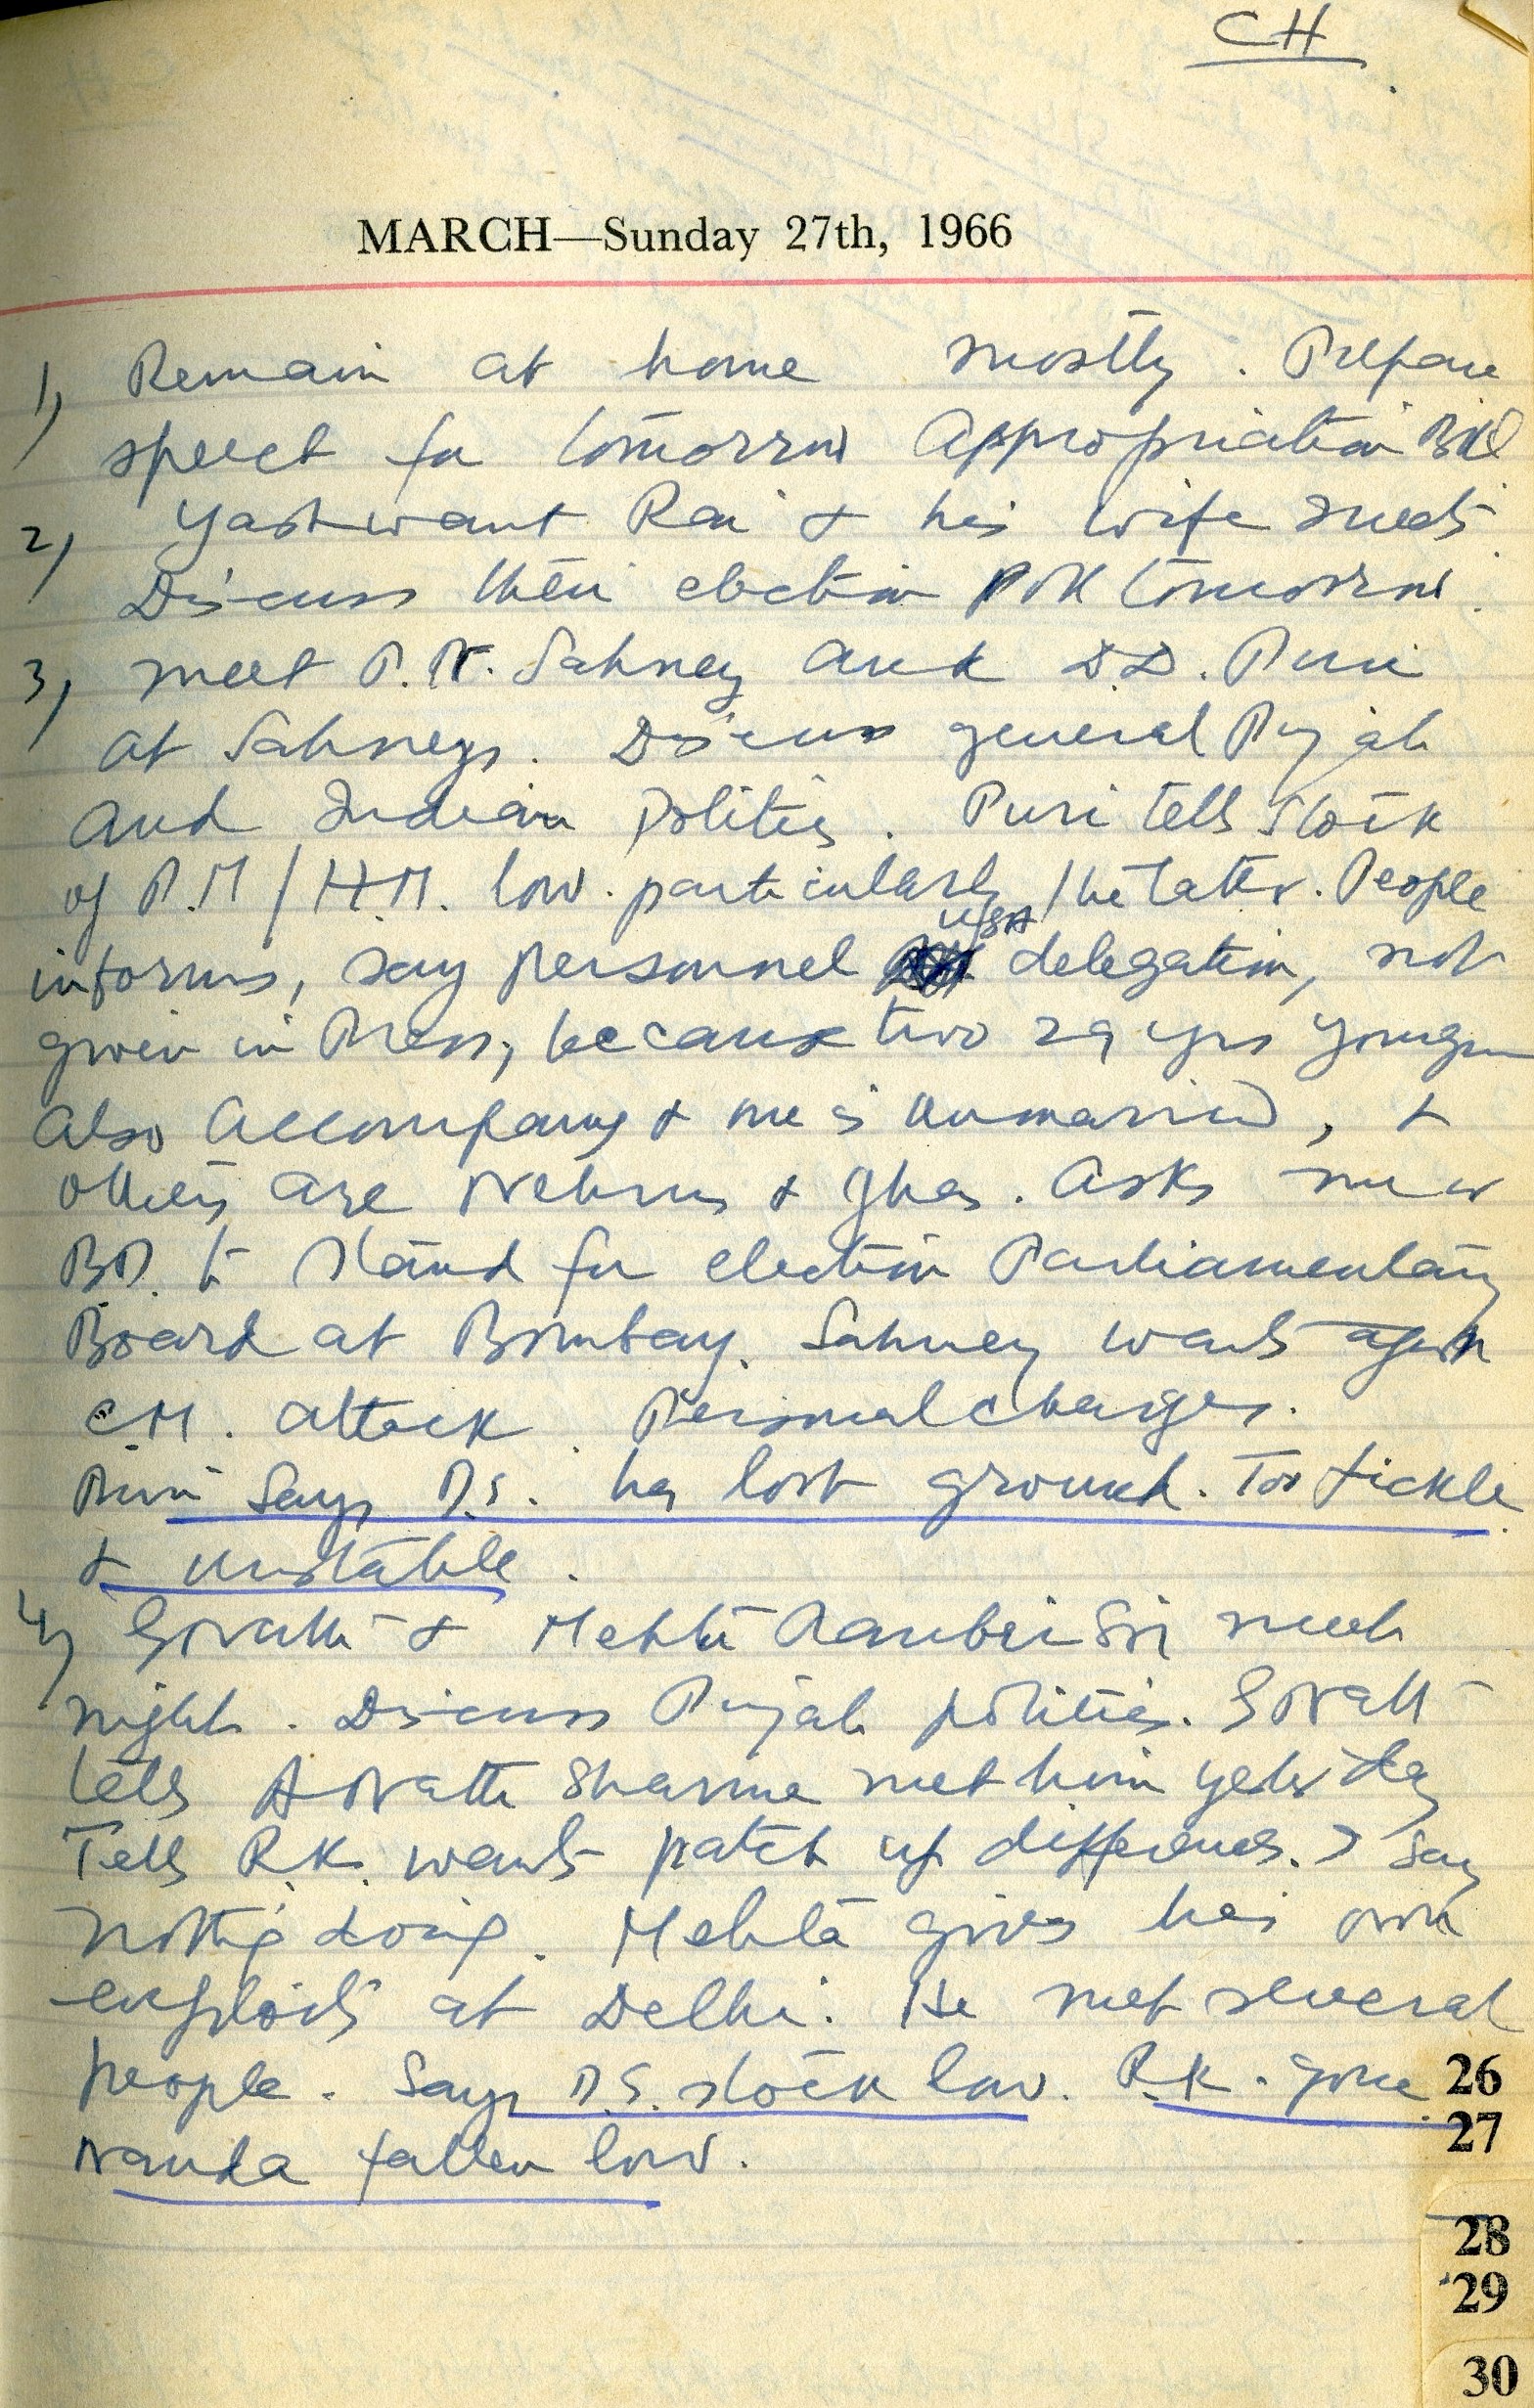 CH
MARCH—Sunday 27th, 1966
1) Remain at home mostly. Prepare
speech for tomorrow Appropriation Bill
2) Yashwant Rai & his wife meets.
Discuss their election poll tomorrow.
3) Meet P.N. Sahney and D.D. Puri
at Sahneys. Discuss general Pujab
and Indian politics. Puri tells stock
of P.M / H.M. low. particularly the latter. People
informs, say personnel USA delegation, not
given in Press, because two 29 yrs
also accompany & one is unmarried, &
others are Nehrus & Jhas. Asks me or
B.D. to stand for election Parliamentary
Board at Bombay. Sahney wants
C.M. attack. Personal charges.
Puri says D.S. has lost ground. Too fickle
& unstable.
4) & Mehta Ranbir Sin meet
night. Discuss Pujab politics.
tells A Nath Sharma met him yesterday
Tells R.K. wants patch up differences. I say
nothing doing. Mehta gives his own
exploits at Delhi. He met several
people. Says D.S. stock low. R.K. gone
Nanda fallen low.
26
27
28
29
30